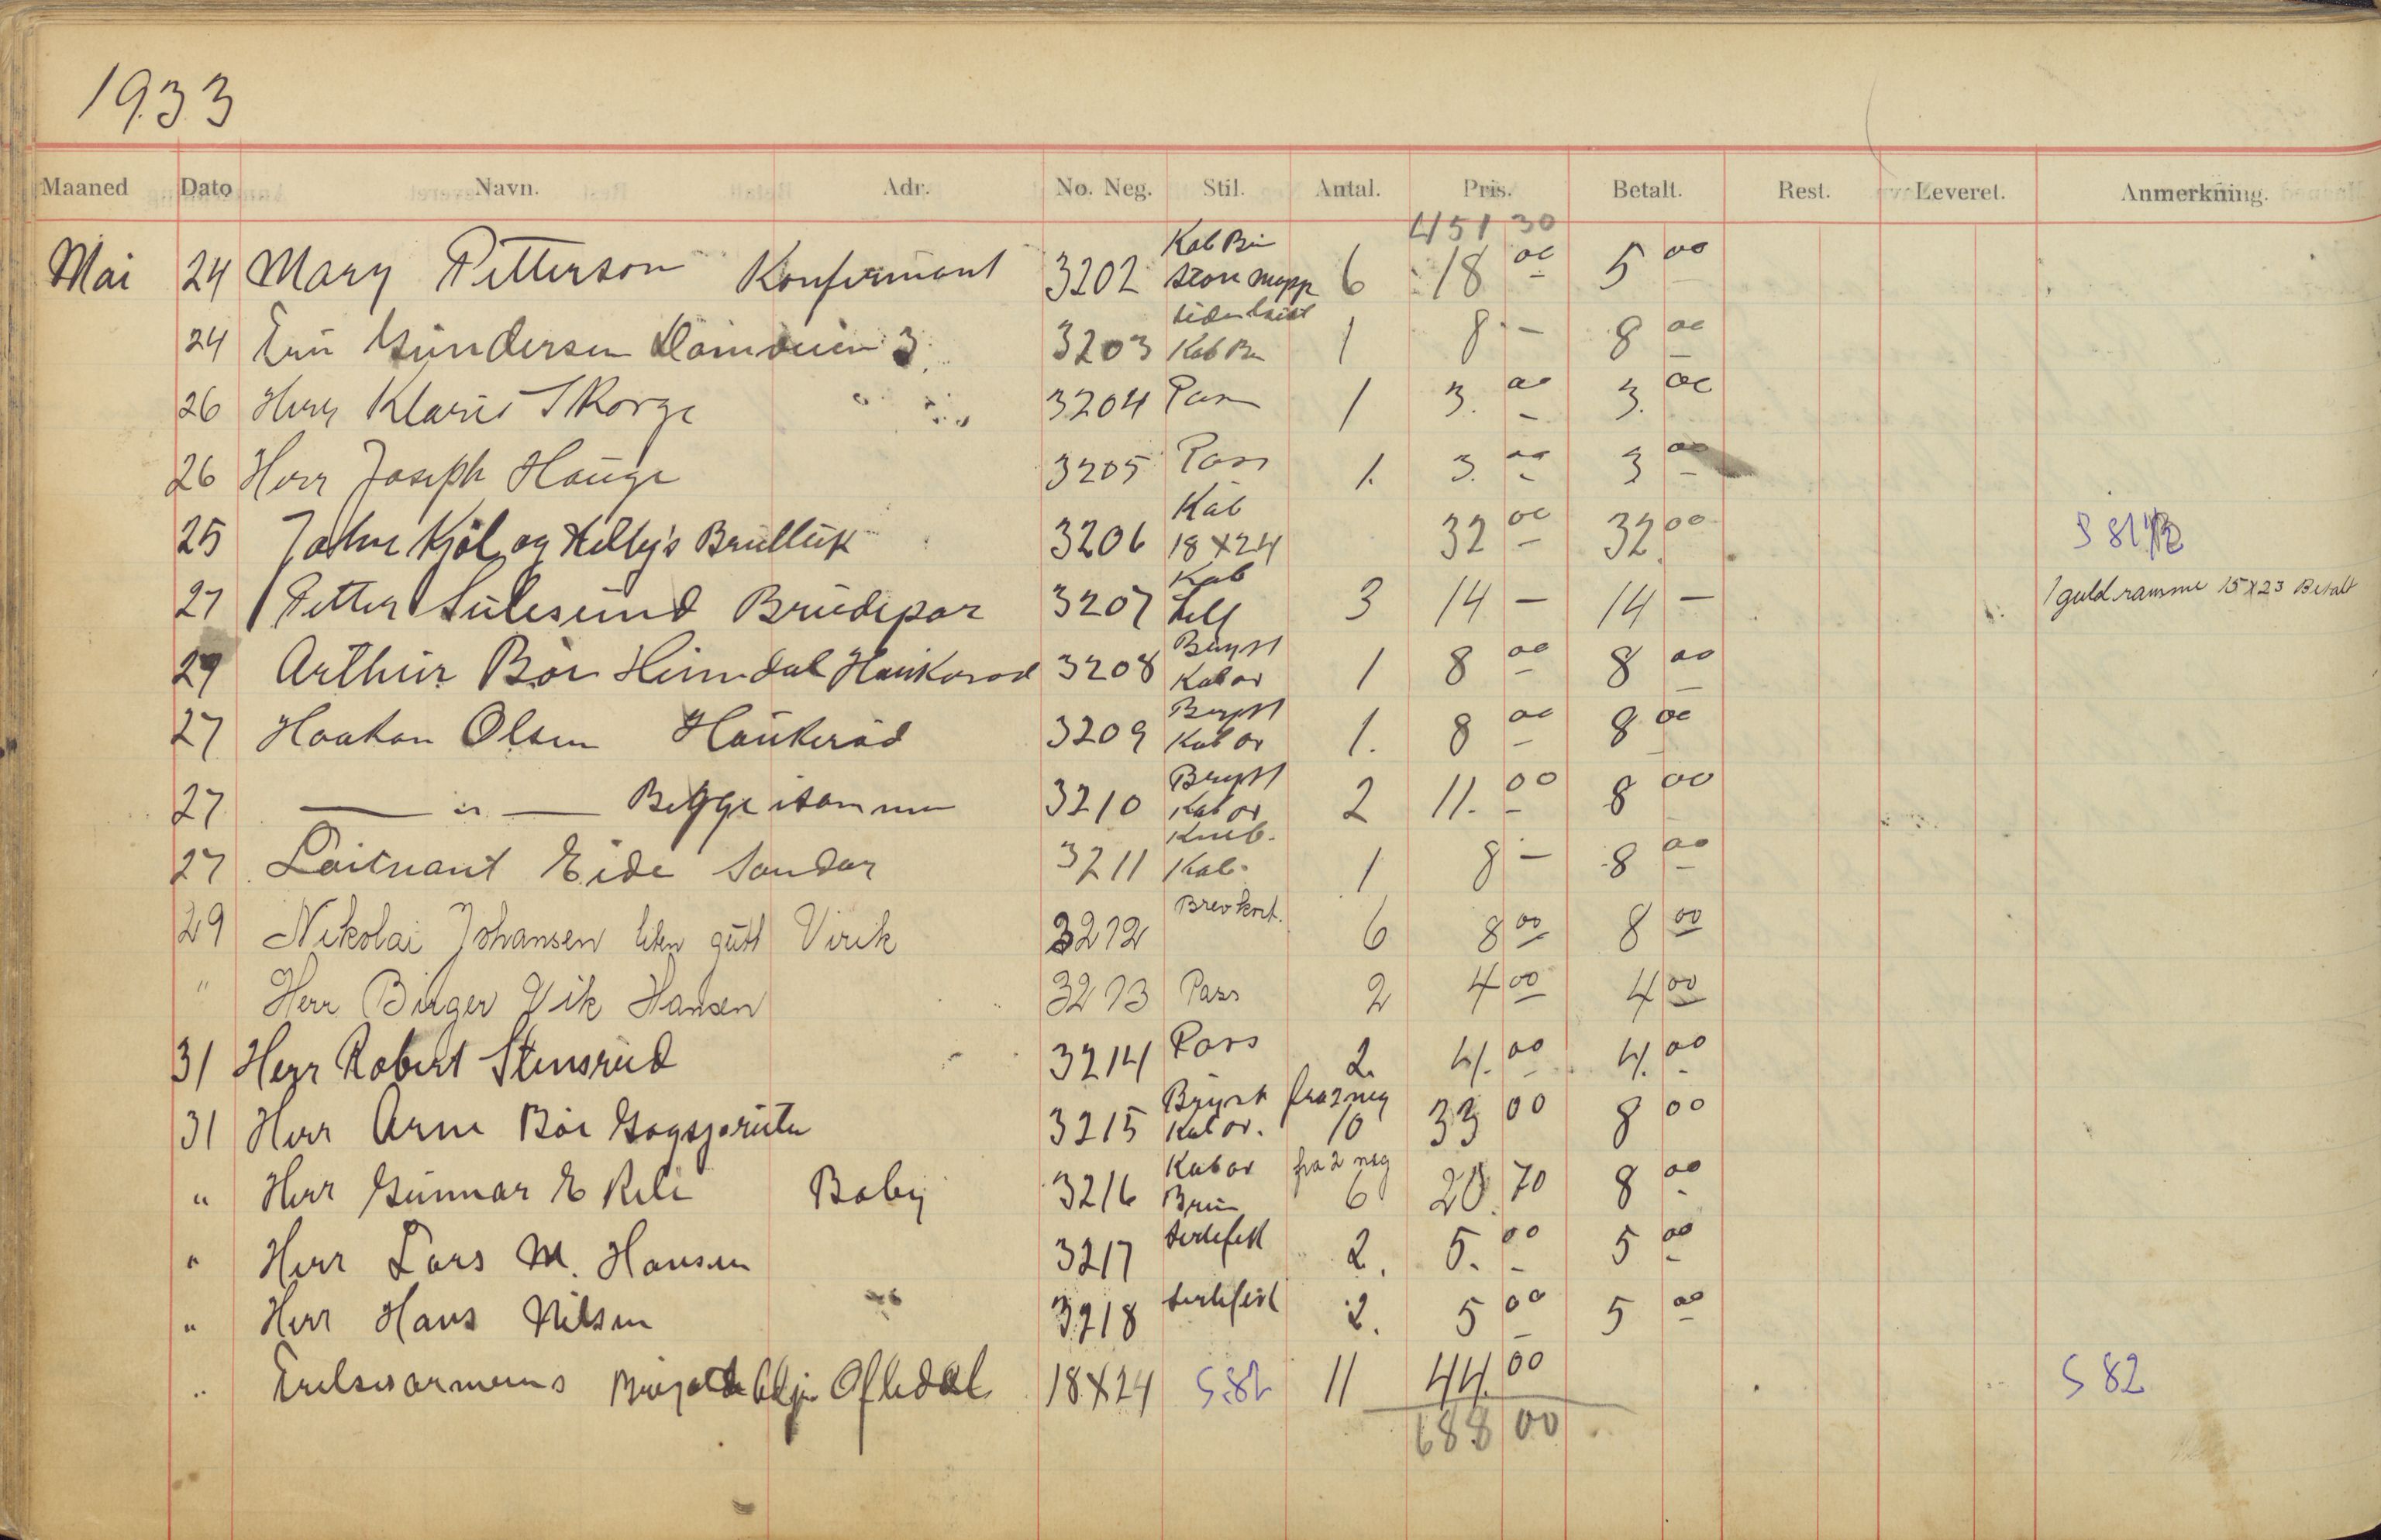 1933
Maaned Dato Navn. Adr. No. Neg. Stil. Antal. Pris. Betalt. Rest. Leveret. Anmerkning.
451 30
Mai 24 Mary Petterson Konfirmant 3202 Kab Bru 6 18 00 5 00
24 Gundersen 3 3203 Kab Bru 1 8 - 8 00
26 Herr Klaris Skorge 3204 Pass 1 3. 00 3. 00
26 Herr Joseph Hauge 3205 Pass 1. 3. 00 3 00
25 Kjøl og Brulluk 3206 Kab 18x24 32 00 32 00
27 Petter Sulesund Brudepar 3207 Kab hell 3 14 - 14 - 1 guld ramme 15x23 Betalt
29 Arthur Bøe Haukerød 3208 Bryst Kab or 1 8 00 8 00
27 Haakon Olsen Haukerød 3209 Bryst Kab or 1. 8 00 8 00
27 — " — Begge isammen 3210 Bryst Kab or 2 11. 00 8 00
27 Løitnant Eide Sandar 3211 Kneb. Kab. 1 8 - 8 00
29 Nikolai Johansen liten gutt Virik 3212 Brevkort. 6 8 00 8 00
" Herr Birger Vik Hansen 3213 Pass 2 4 00 4 00
31 Herr Robert Stensrud 3214 Pass 2. 4. 00 4. 00
31 Herr Arne Bøe 3215 Bryst Kab or. fra 2 neg 10 33 00 8 00
" Herr Gunnar E Baby 3216 Kab or Brun fra 2 neg 6 20. 70 8 00
" Herr Lars M. Hansen 3217 Sertefikt 2. 5. 00 5 00
" Herr Hans Nilsen 3218 Sertefikt 2. 5 00 5 00
" Frelsesarmeens Oftedal 18x24 11 44. 00 S 82
688 00